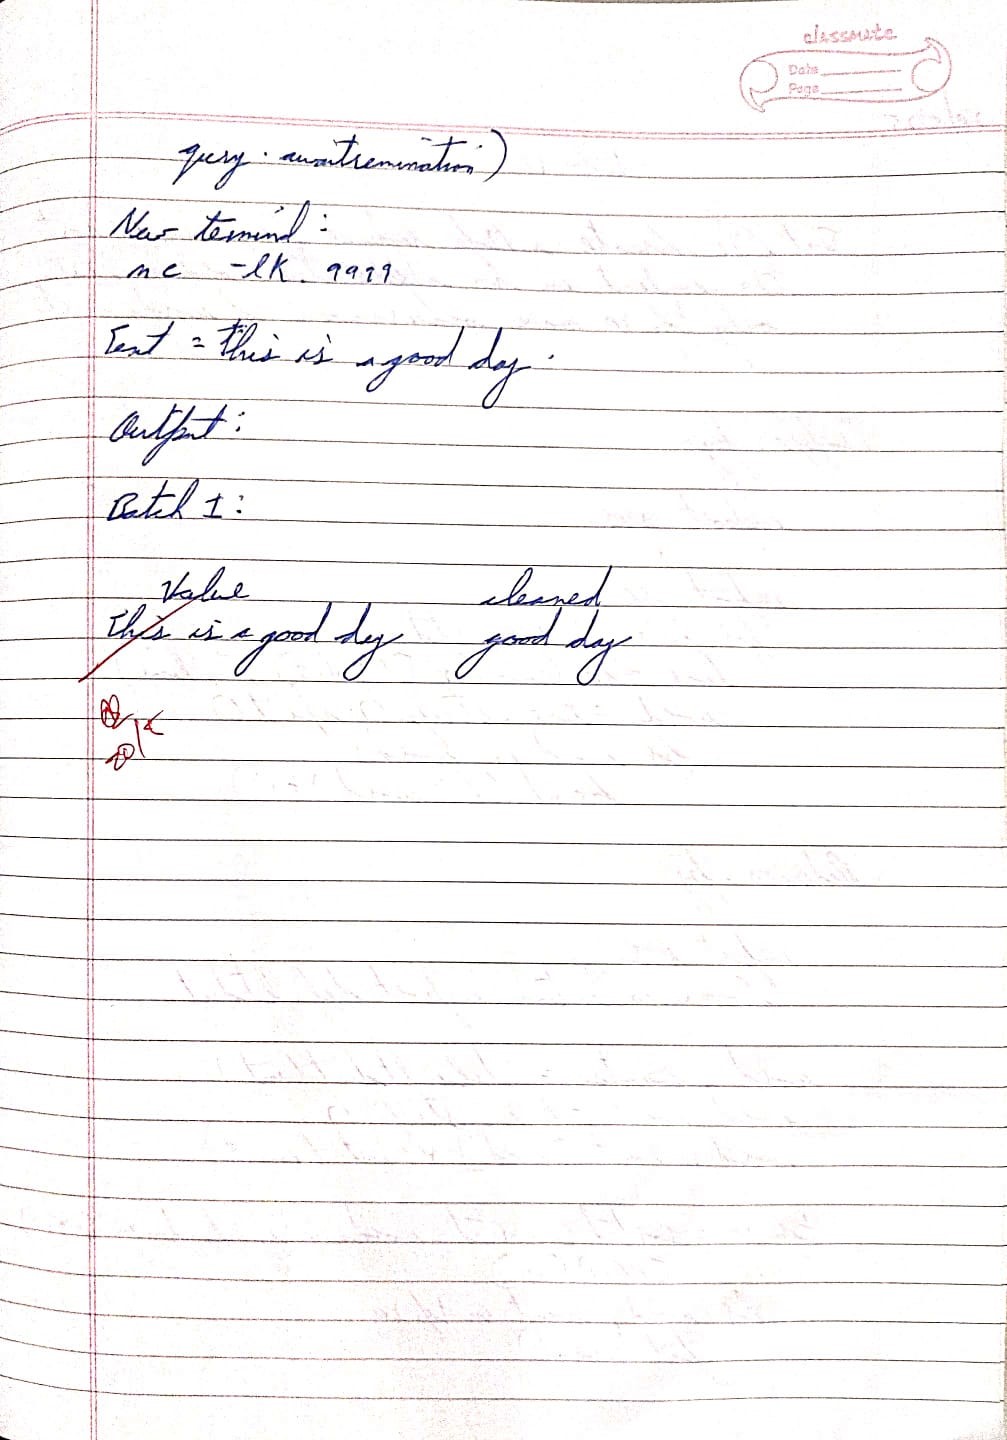 classmate
Date
Page
query. awaitremination)
New terminal:
nc -lK. 9999
Text = This is a good day.
Output:
Batch 1:
Value cleaned
This is a good day good day